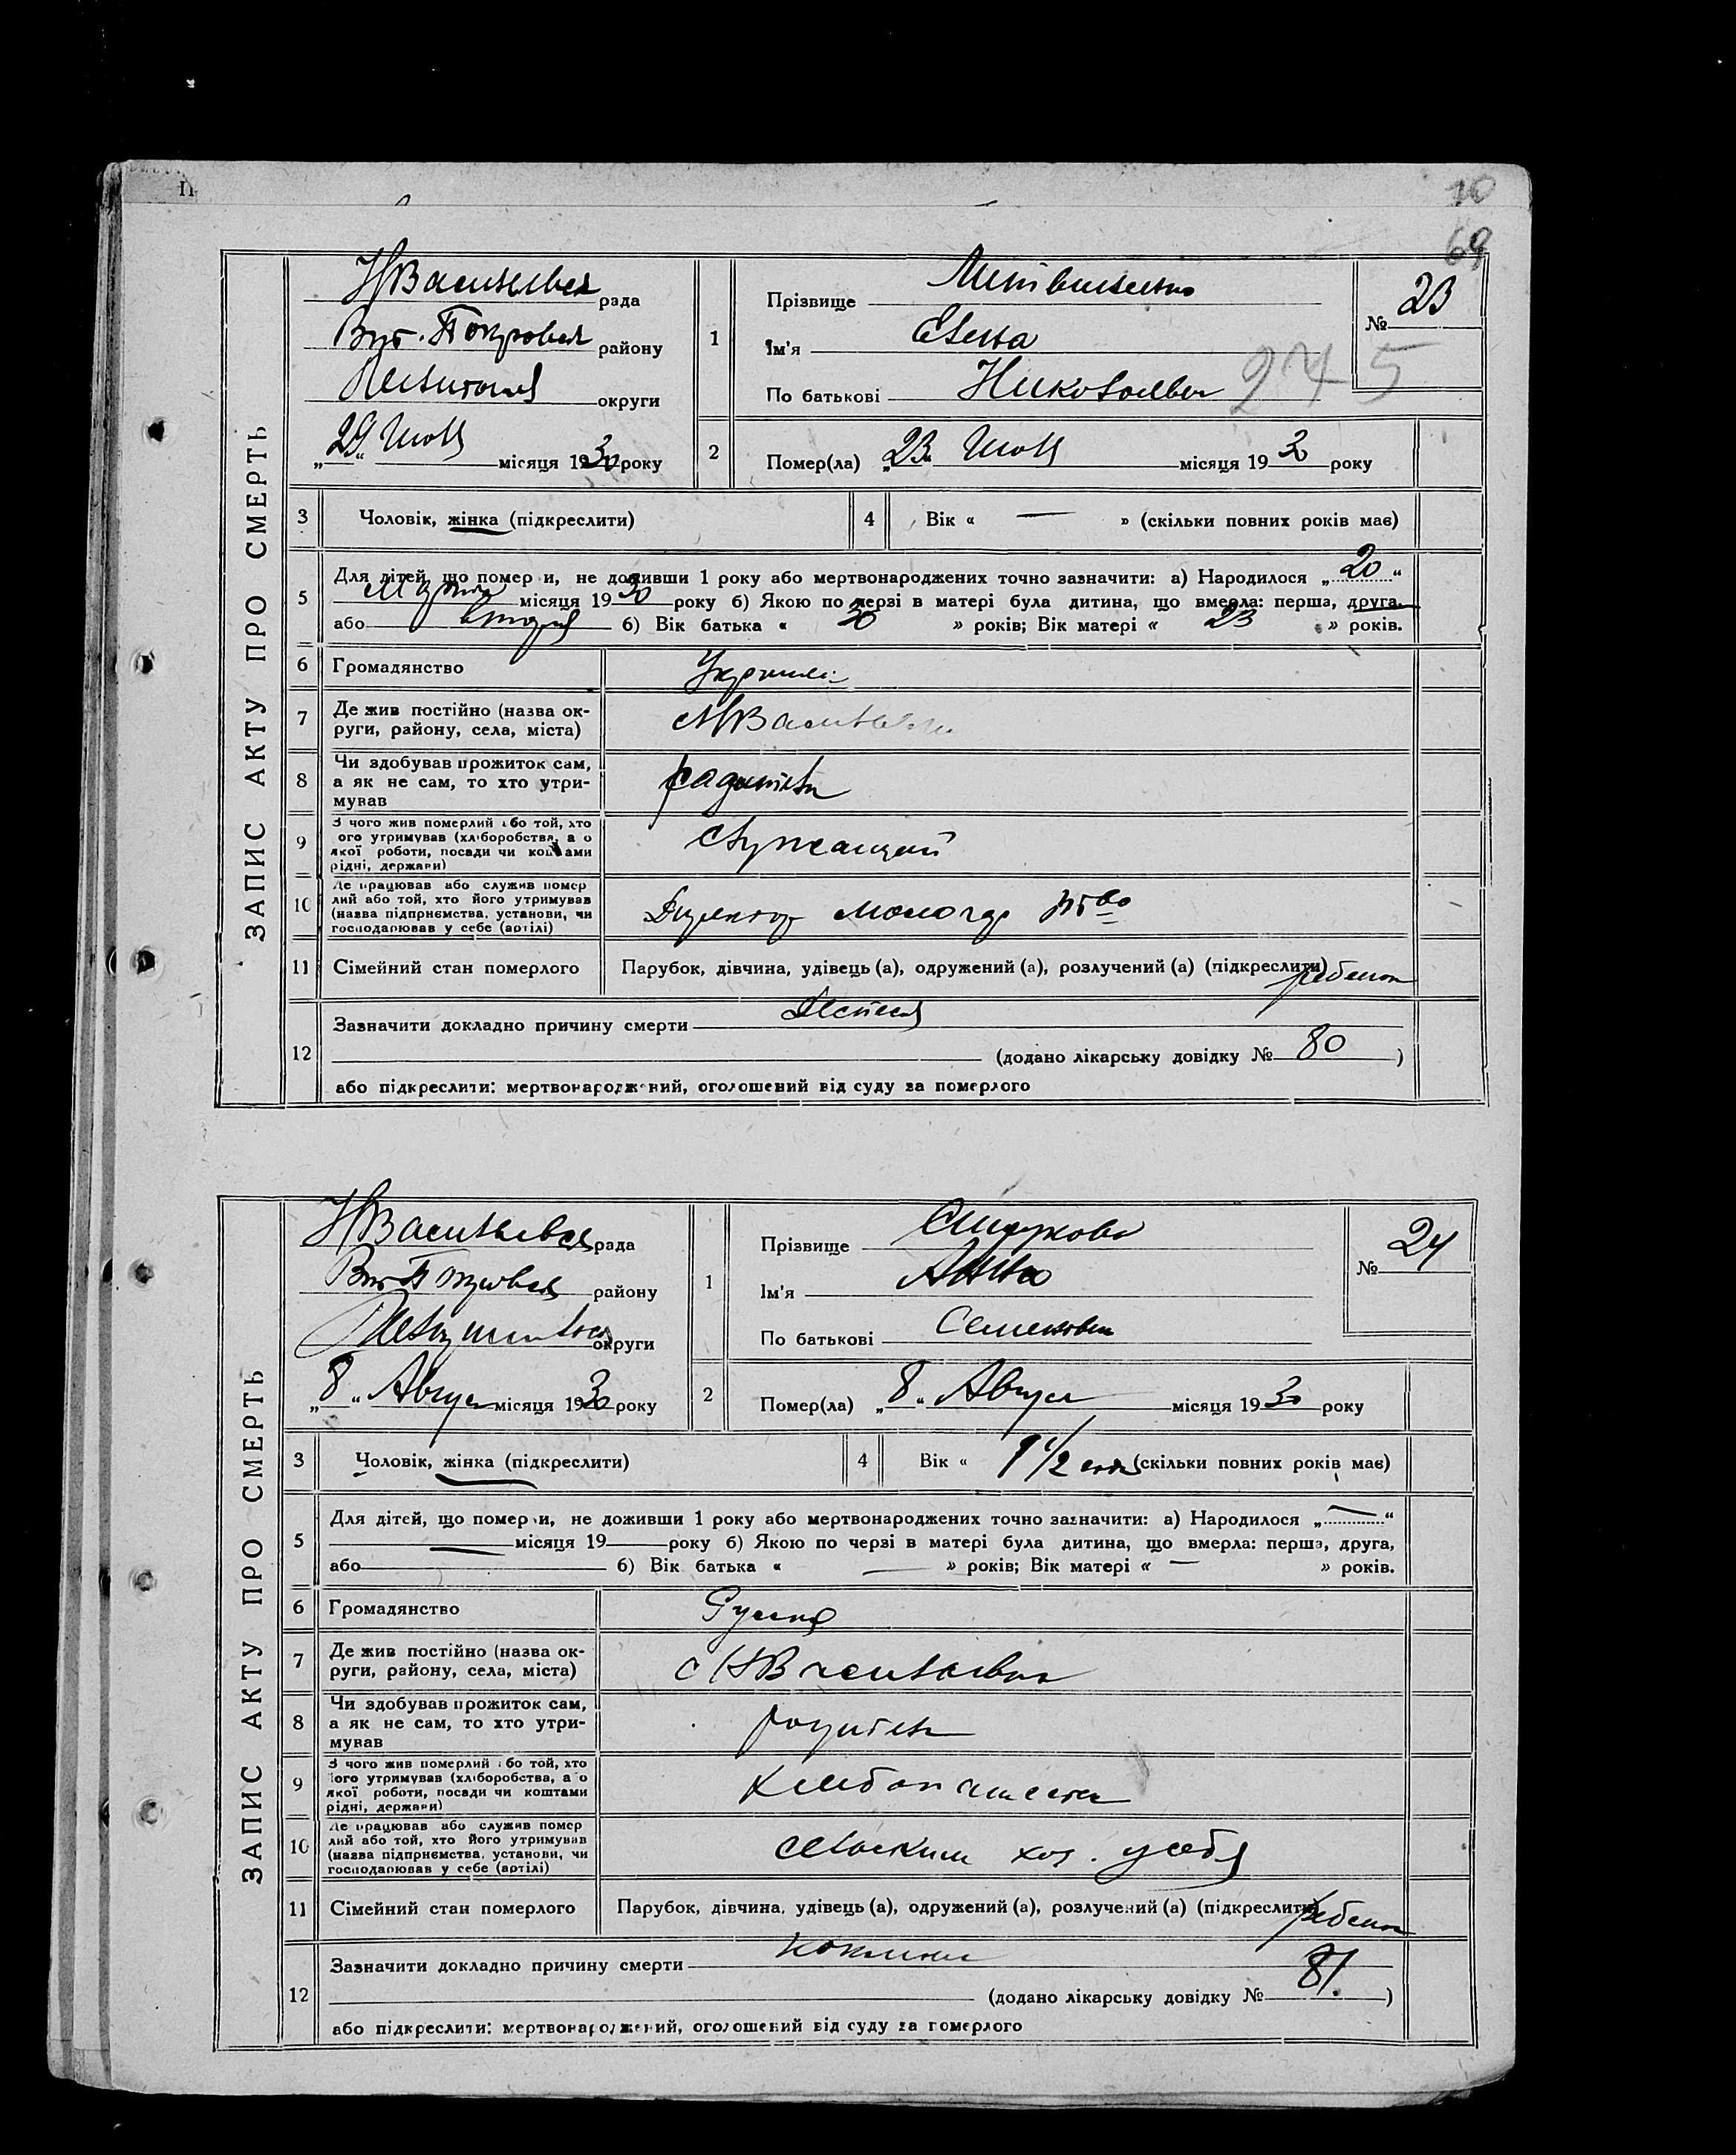 10
69
ЗАПИС АКТУ ПРО СМЕРТЬ
НВасильевск рада
Вит. Покровск району
округи
„29“ Июля місяця 1930 року
1
Прізвище Литвиненко
Ім'я Елена
По батькові Николаевна
№ 23
245
2
Помер(ла) „23“ Июля місяця 1930 року
3
Чоловік, жінка (підкреслити)
4
Вік « — » (скільки повних років має)
5
Для дітей, що померли, не доживши 1 року або мертвонароджених точно зазначити: а) Народилося „20“
Марта місяця 1930 року б) Якою по черзі в матері була дитина, що вмерла: перша, друга,
або вторая б) Вік батька « 30 » років; Вік матері « 23 » років.
6
Громадянство
7
Де жив постійно (назва ок-
руги, району, села, міста)
с НВасильевка
8
Чи здобував прожиток сам,
а як не сам, то хто утри-
мував
родители
9
З чого жив померлий або той, хто
його утримував (хліборобства, або
якої роботи, посади чи коштами
рідні, держави)
Служащий
10
Де працював або служив помер
лий або той, хто його утримував
(назва підприємства, установи, чи
господарював у себе (артілі)
Директор
11
Сімейний стан померлого
Парубок, дівчина, удівець (а), одружений (а), розлучений (а) (підкреслити) ребенок
12
Зазначити докладно причину смерти
(додано лікарську довідку № 80 )
або підкреслити: мертвонароджений, оголошений від суду за померлого
ЗАПИС АКТУ ПРО СМЕРТЬ
НВасильевск рада
Вит Покровск району
округи
„8“ Август місяця 1930 року
1
Прізвище
Ім'я Анна
По батькові Семеновна
№ 24
2
Помер(ла) „8“ Август місяця 1930 року
3
Чоловік, жінка (підкреслити)
4
Вік « 1 1/2 года (скільки повних років має)
5
Для дітей, що померли, не доживши 1 року або мертвонароджених точно зазначити: а) Народилося „—“
— місяця 19 року б) Якою по черзі в матері була дитина, що вмерла: перша, друга,
або б) Вік батька « — » років; Вік матері « — » років.
6
Громадянство
Русская
7
Де жив постійно (назва ок-
руги, району, села, міста)
с НВасильевка
8
Чи здобував прожиток сам,
а як не сам, то хто утри-
мував
родители
9
З чого жив померлий або той, хто
його утримував (хліборобства, або
якої роботи, посади чи коштами
рідні, держави)
10
Де працював або служив помер
лий або той, хто його утримував
(назва підприємства, установи, чи
господарював у себе (артілі)
сельским хоз. у себя
11
Сімейний стан померлого
Парубок, дівчина, удівець (а), одружений (а), розлучений (а) (підкреслити) ребенок
12
Зазначити докладно причину смерти коклюш
(додано лікарську довідку № 81. )
або підкреслити: мертвонароджений, оголошений від суду за померлого